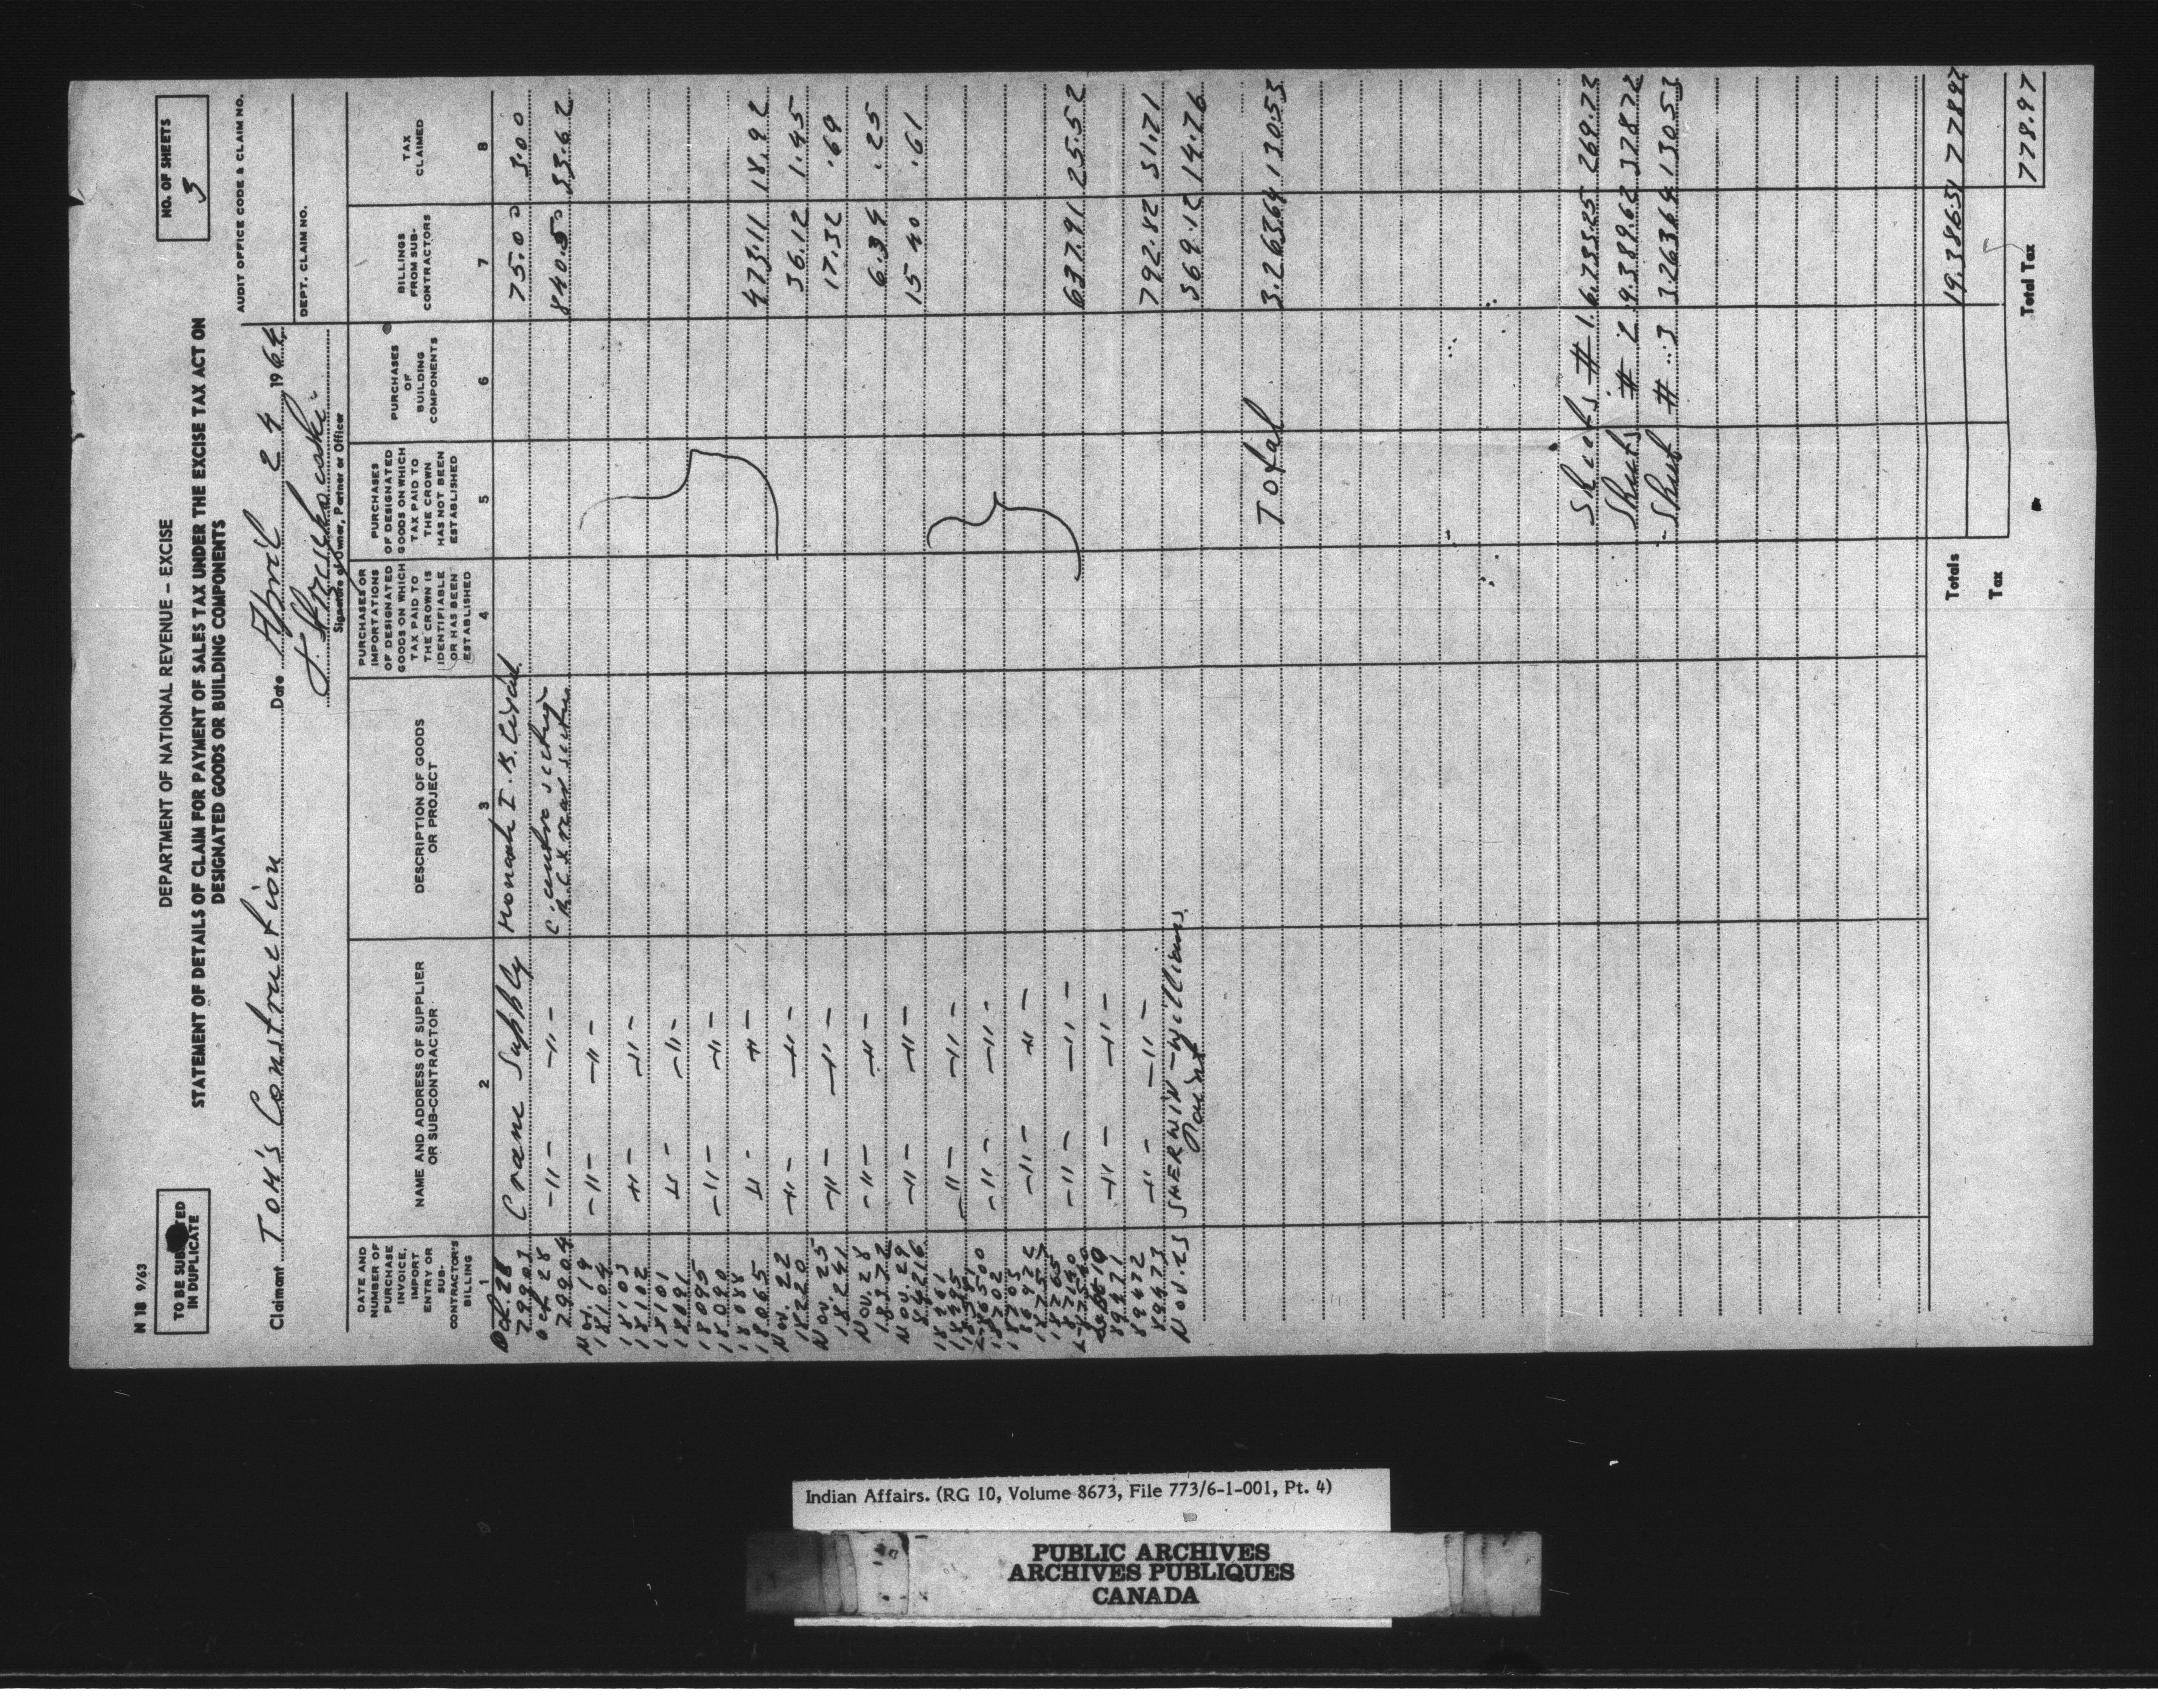 N 18 9/63
TO BE SUB TED
IN DUPLICATE
DEPARTMENT OF NATIONAL REVENUE – EXCISE
STATEMENT OF DETAILS OF CLAIM FOR PAYMENT OF SALES TAX UNDER THE EXCISE TAX ACT ON
DESIGNATED GOODS OR BUILDING COMPONENTS
NO. OF SHEETS
3
AUDIT OFFICE CODE & CLAIM NO.
DEPT. CLAIM NO.
Claimant TOM'S Construction Date April 24 1964
Signature of Owner, Partner or Officer
DATE AND NUMBER OF PURCHASE INVOICE, IMPORT ENTRY OR SUB-CONTRACTOR'S BILLING
1
NAME AND ADDRESS OF SUPPLIER OR SUB-CONTRACTOR
2
DESCRIPTION OF GOODS OR PROJECT
3
PURCHASES OR IMPORTATIONS OF DESIGNATED GOODS ON WHICH TAX PAID TO THE CROWN IS IDENTIFIABLE OR HAS BEEN ESTABLISHED
4
PURCHASES OF DESIGNATED GOODS ON WHICH TAX PAID TO THE CROWN HAS NOT BEEN ESTABLISHED
5
PURCHASES OF BUILDING COMPONENTS
6
BILLINGS FROM SUB-CONTRACTORS
7
TAX CLAIMED
8
Oct. 28
79903 Crane Supply 75.00 3.00
Oct 28
79904 -"- -"- 840.50 33.62
Nov. 19
18104 -"- -"-
18103
18102 -"- -"-
18101
18091 -"- -"-
18095
18090 -"- -"-
18088
18065 -"- -"- 473.11 18.92
Nov. 22
18220 -"- -"- 36.12 1.45
Nov. 25
18241 -"- -"- 17.32 .69
Nov. 28
18372 -"- -"- 6.34 .25
Nov. 29
84216 -"- -"- 15.40 .61
-"- -"-
18702 -"- -"-
-"- -"-
18765 -"- -"- 637.91 25.52
89471 -"- -"-
89472
89473 -"- -"- 792.82 31.71
Nov. 25 SHERWIN - Williams 369.12 14.76
Paint
Total 3.263.64 130.53
Sheets # 1 6.733.25 269.72
Sheets # 2 9.389.62 378.72
Sheet # 3 3.263.64 130.53
Totals 19.386.51 778.97
Tax
Total Tax 778.97
Indian Affairs. (RG 10, Volume 8673, File 773/6-1-001, Pt. 4)
PUBLIC ARCHIVES
ARCHIVES PUBLIQUES
CANADA